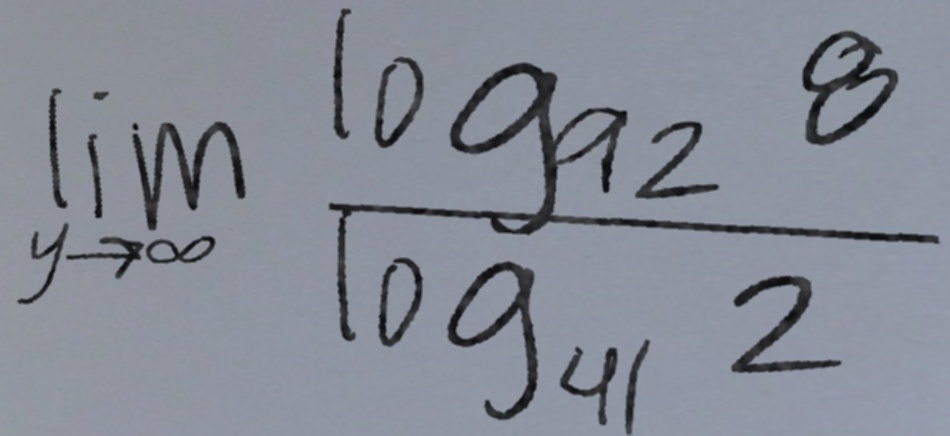 \lim_{y \to \infty} \frac{\log_{92} 8}{\log_{41} 2}